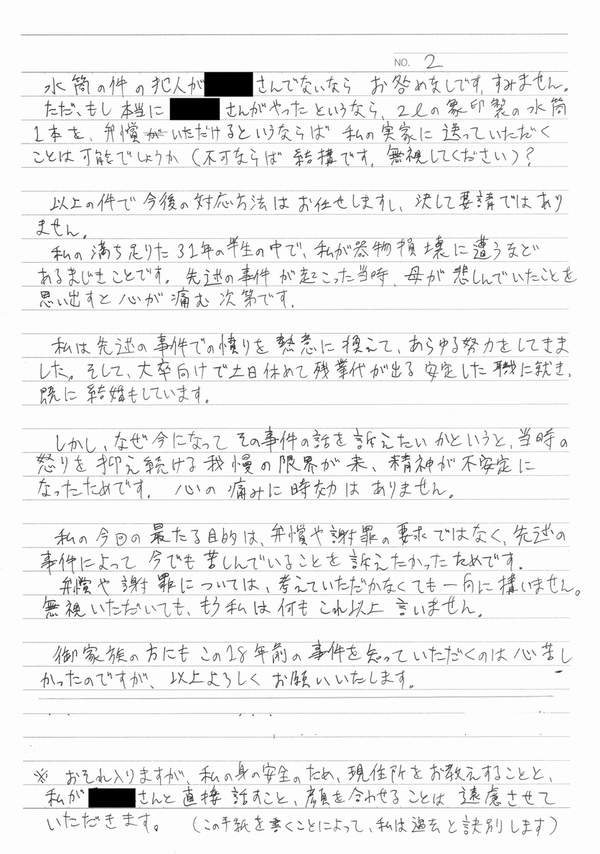 NO. 2
水筒の件の犯人が さんでないなら お咎めなしです,すみません。
ただ、もし本当に さんがやったというなら、2ℓの象印製の水筒
1本を、弁償いただけるというならば 私の実家に送っていただく
ことは可能でしょうか(不可ならば 結構です,無視してください)?
以上の件で今後の対応方法はお任せしますし、決して要請ではあり
ません。
私の満ち足りた31年の半生の中で、私が器物損壊に遭うなど
あるまじきことです。先述の事件が起こった当時、母が悲しんでいたことを
思い出すと心が痛む次第です.
私は先述の事件での憤りを熱意に換えて、あらゆる努力をしてきま
した。そして、大卒向けで土日休めて残業代が出る安定した職に就き,
既に結婚もしています.
しかし、なぜ今になってその事件の話を訴えたいかというと、当時の
怒りを抑え続ける我慢の限界が来、精神が不安定に
なったためです. 心の痛みに時効はありません。
私の今回の最たる目的は、弁償や謝罪の要求ではなく、先述の
事件によって今でも苦しんでいることを訴えたかったためです.
弁償や謝罪については、考えていただかなくても一向に構いません。
無視いただいても、もう私は何もこれ以上言いません。
御家族の方にもこの18年前の事件を知っていただくのは心苦し
かったのですが、以上よろしくお願いいたします。
※ おそれ入りますが、私の身の安全のため、現住所をお教えすることと、
私が さんと直接話すこと、顔を合わせることは遠慮させて
いただきます。 (この手紙を書くことによって、私は過去と訣別します)